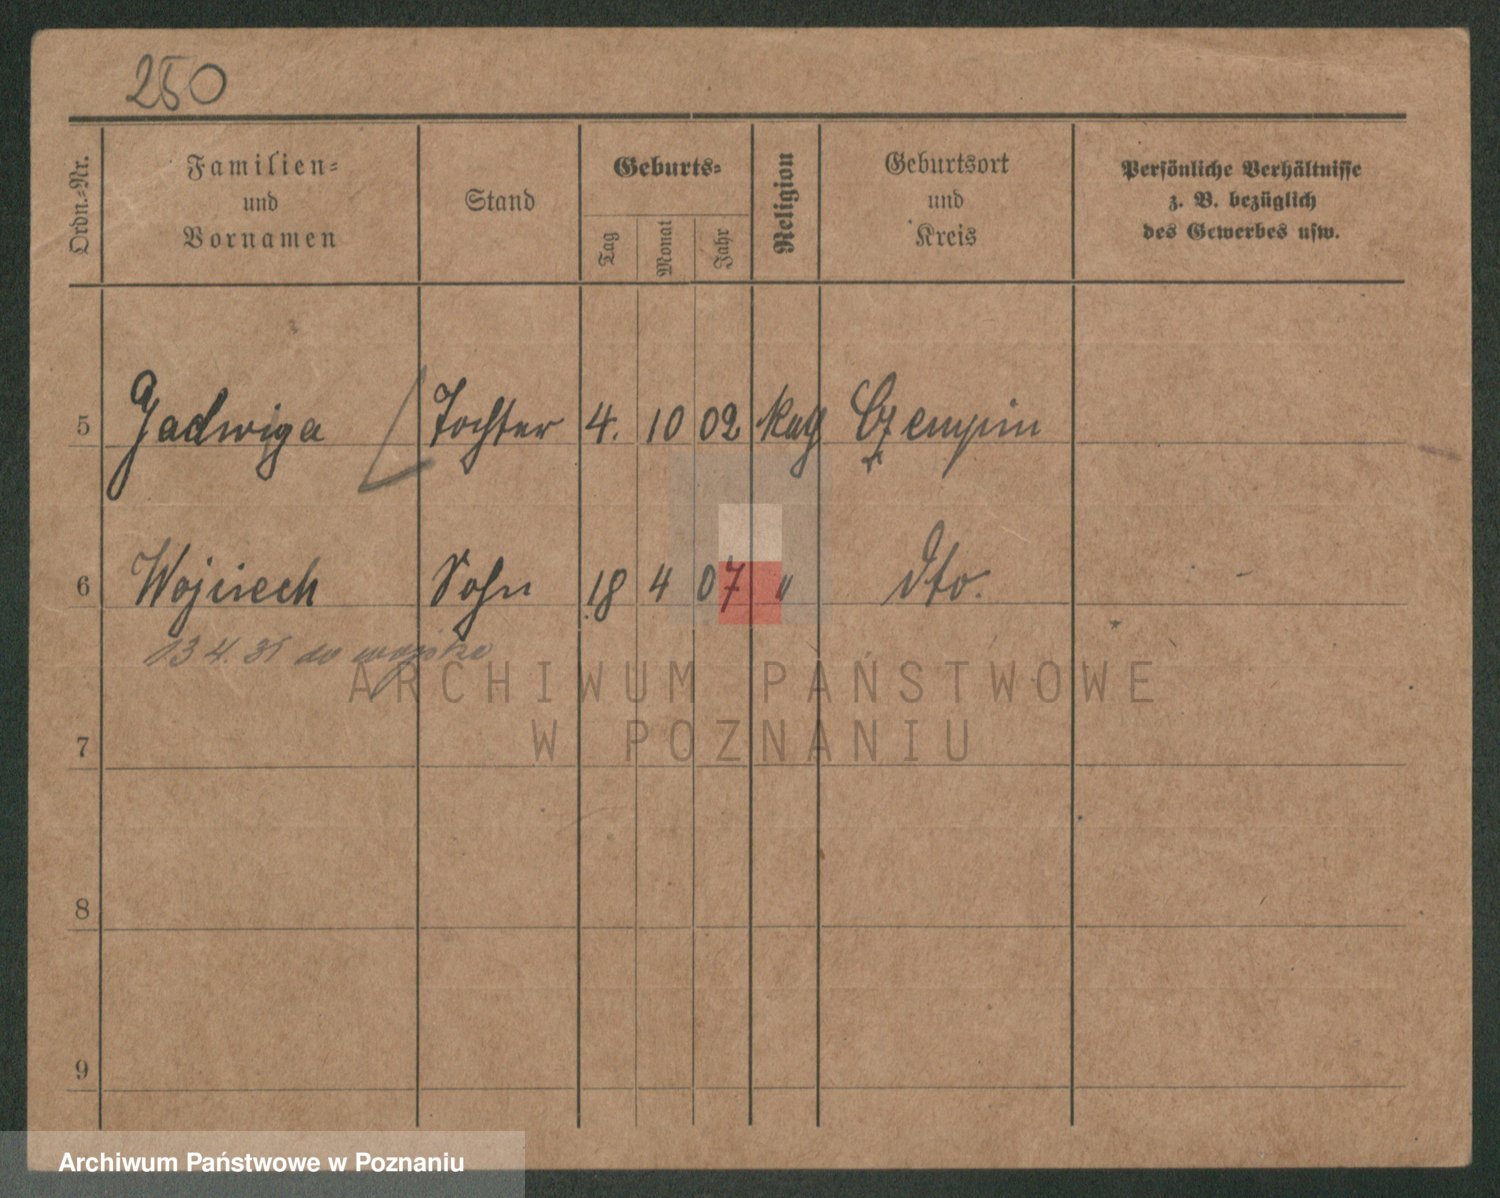 250
Ordn.-Nr.
Familien-
und
Vornamen
Stand
Geburts-
Tag
Monat
Jahr
Religion
Geburtsort
und
Kreis
Persönliche Verhältnisse
z. B. bezüglich
des Gewerbes usw.
5 Jadwiga Tochter 4. 10 02 kath Czempin
6 Wojciech Sohn 18 4 07 " dto.
13 4. 31 do wojska
ARCHIWUM PAŃSTWOWE
W POZNANIU
7
8
9
Archiwum Państwowe w Poznaniu